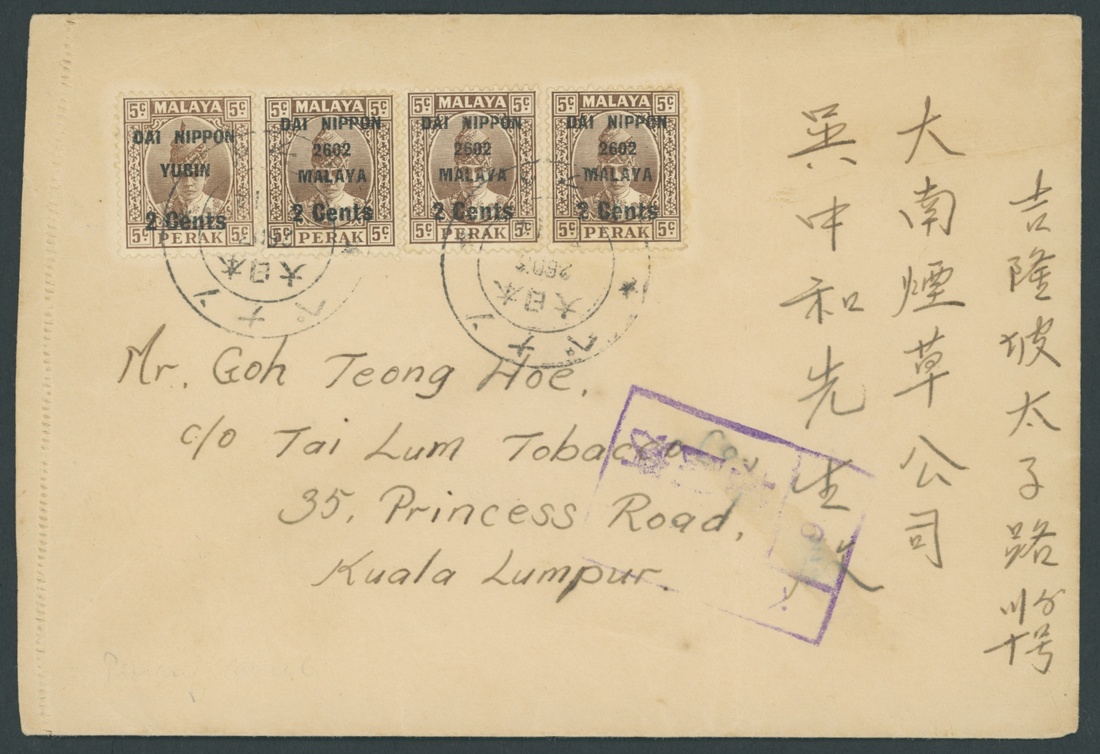 5c MALAYA 5c
DAI NIPPON
YUBIN
2 Cents
5c PERAK 5c
5c MALAYA 5c
DAI NIPPON
2602
MALAYA
2 Cents
5c PERAK 5c
5c MALAYA 5c
DAI NIPPON
2602
MALAYA
2 Cents
5c PERAK 5c
5c MALAYA 5c
DAI NIPPON
2602
MALAYA
2 Cents
5c PERAK 5c
大日本
ペナン
大日本
ペナン
Mr. Goh Teong Hoe,
c/o Tai Lum Tobacco Co,
35, Princess Road,
Kuala Lumpur.
吉隆坡太子路
号
大南煙草公司
吳中和先生